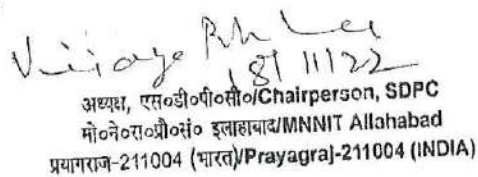 18/11/22
अध्यक्ष, एस०डी०पी०सी०/Chairperson, SDPC
मो०ने०रा०प्रौ०सं० इलाहाबाद/MNNIT Allahabad
प्रयागराज-211004 (भारत)/Prayagraj-211004 (INDIA)